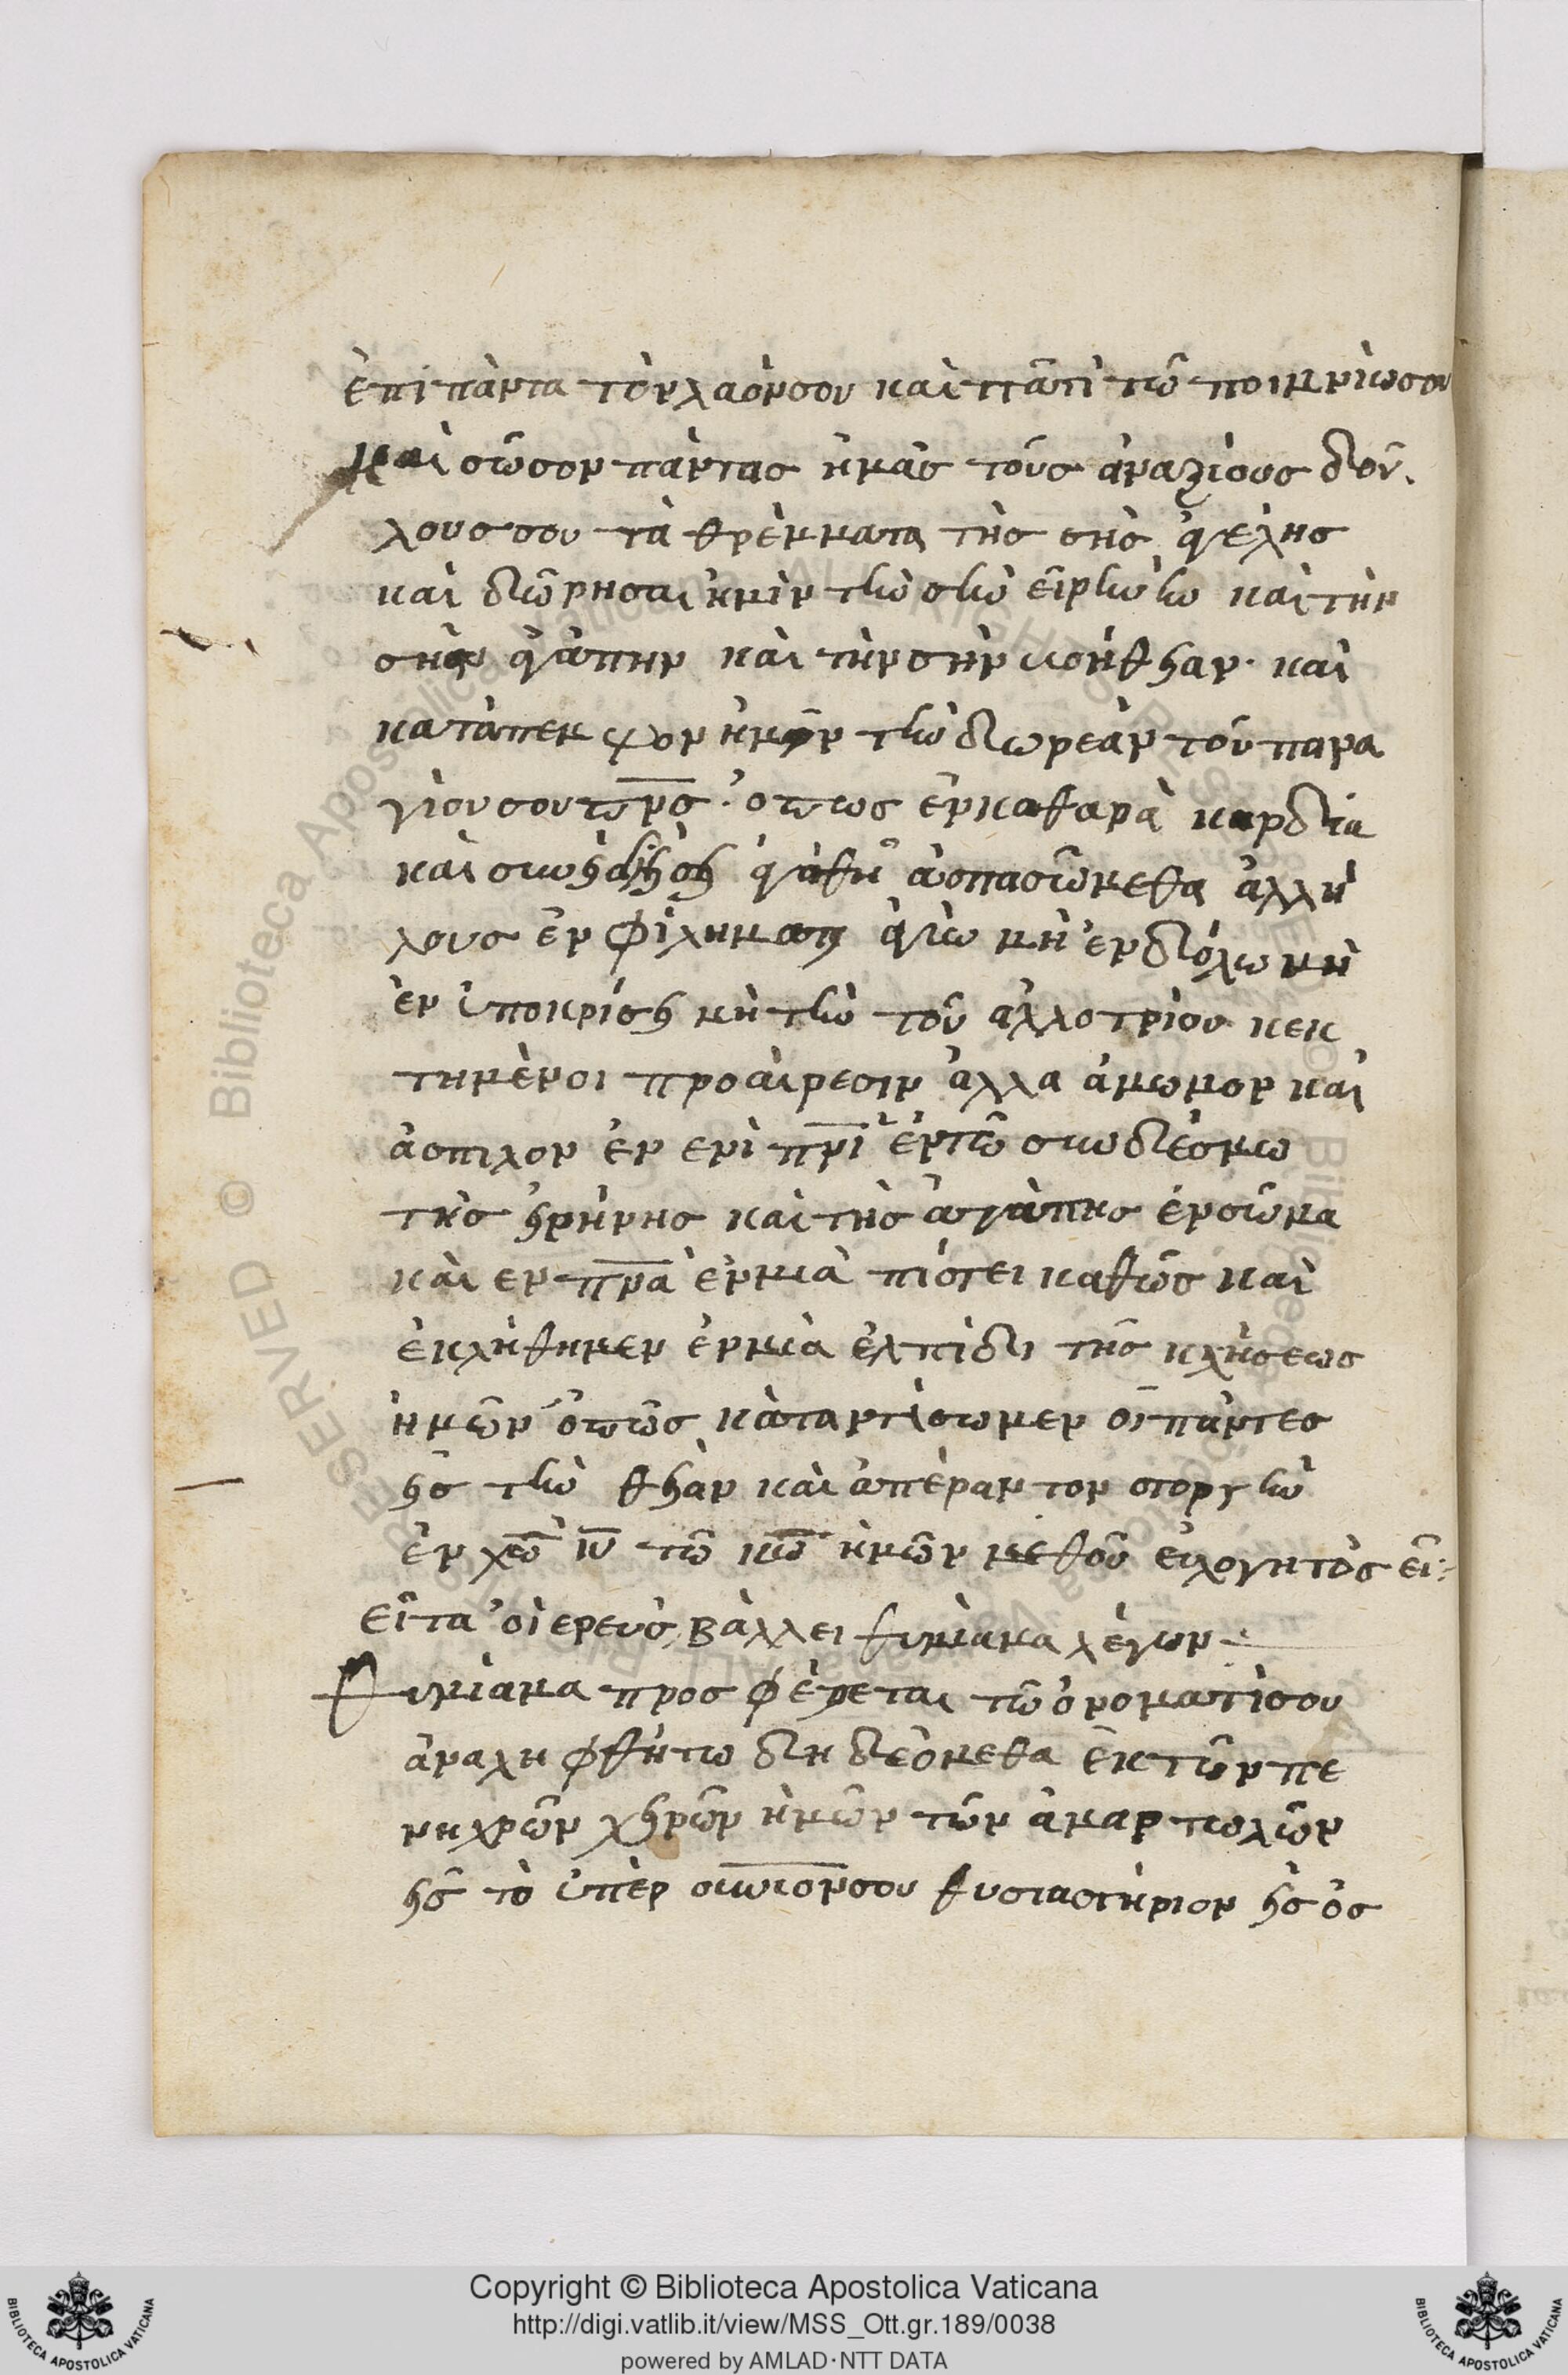 ἐπὶ πάντα τὸν λαόν σου καὶ παντὶ τῶ ποιμνίω σου
καὶ σῶσον πάντας ἡμᾶς τοὺς ἀναξίους δού
λους σου τὰ θρέμματα τῆς σῆς ἀγέλης
καὶ δώρησαι ἡμῖν τὴν σὴν εἰρήνην καὶ τὴν
σὴν ἀγάπην καὶ τὴν σὴν βοήθειαν· καὶ
κατάπεμψον ἡμῖν τὴν δωρεὰν τοῦ πανα
γίου σου πνς· ὅπως ἐν καθαρᾶ καρδία
καὶ συνειδήσει ἀγαθῆ ἀσπασώμεθα ἀλλή
λους ἐν φιλήματι ἁγίω μὴ ἐν δόλω μὴ
ἐν ὑποκρίσει μὴ τὴν τοῦ ἀλλοτρίου κεκ
τημένοι προαίρεσιν ἀλλὰ ἄμωμον καὶ
ἄσπιλον ἐν ενὶ πνι ἐν τῶ συνδέσμω
τῆς εἰρήνης καὶ τῆς ἀγάπης ἐν σῶμα
καὶ εν πνα ἐν μιᾶ πίστει καθὼς καὶ
ἐκλήθημεν ἐν μιᾶ ἐλπίδι τῆς κλήσεως
ἡμῶν ὅπως καταντίσωμεν οἱ πάντες
εἰς τὴν θείαν καὶ ἀπέραντον στοργὴν
ἐν χω ιυ τῶ κω ἡμῶν μεθ οὗ εὐλογητὸς εἶ:
Εἶτα ὁ ἱερεὺς βάλλει θυμίαμα λέγων
Θυμίαμα προσφέρεται τῶ ὀνοματί σου
ἀναληφθήτω δὴ δεόμεθα ἐκ τῶν πε
νηχρῶν χειρῶν ἡμῶν τῶν ἁμαρτωλῶν
εἰς τὸ ὑπὲρ ουνιον σου θυσιαστήριον εἰς ὀσ
Copyright © Biblioteca Apostolica Vaticana
http://digi.vatlib.it/view/MSS_Ott.gr.189/0038
powered by AMLAD·NTT DATA